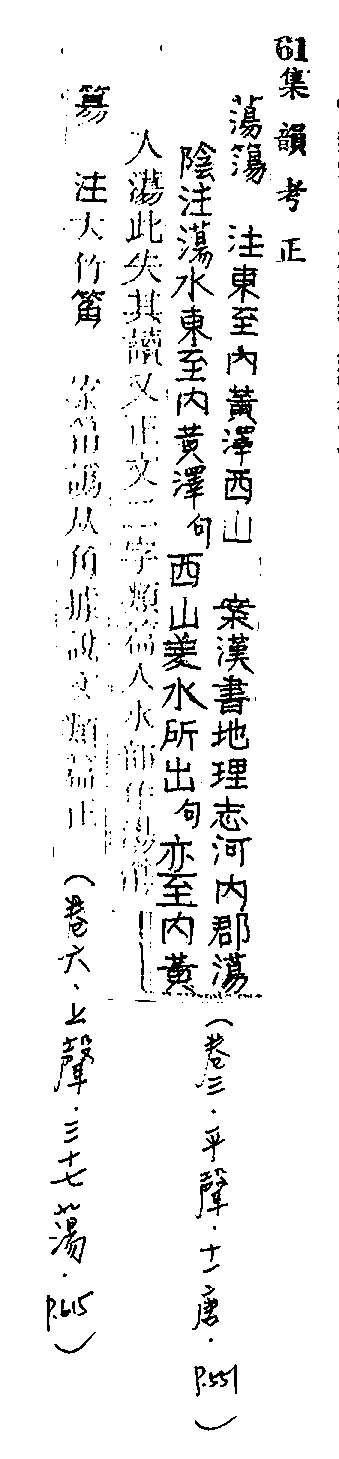 61集韻考正
蕩簜　注東至內黃澤西山　案漢書地理志河內郡蕩
陰注蕩水東至內黃澤句西山羑水所出句亦至內黃
入蕩此失其讀又正文二字類篇入水部作
(卷三．平聲．十一唐．P.551)
簜　注大竹筩　　从　據說文類篇正
(卷六．上聲．三十七蕩．P.615)